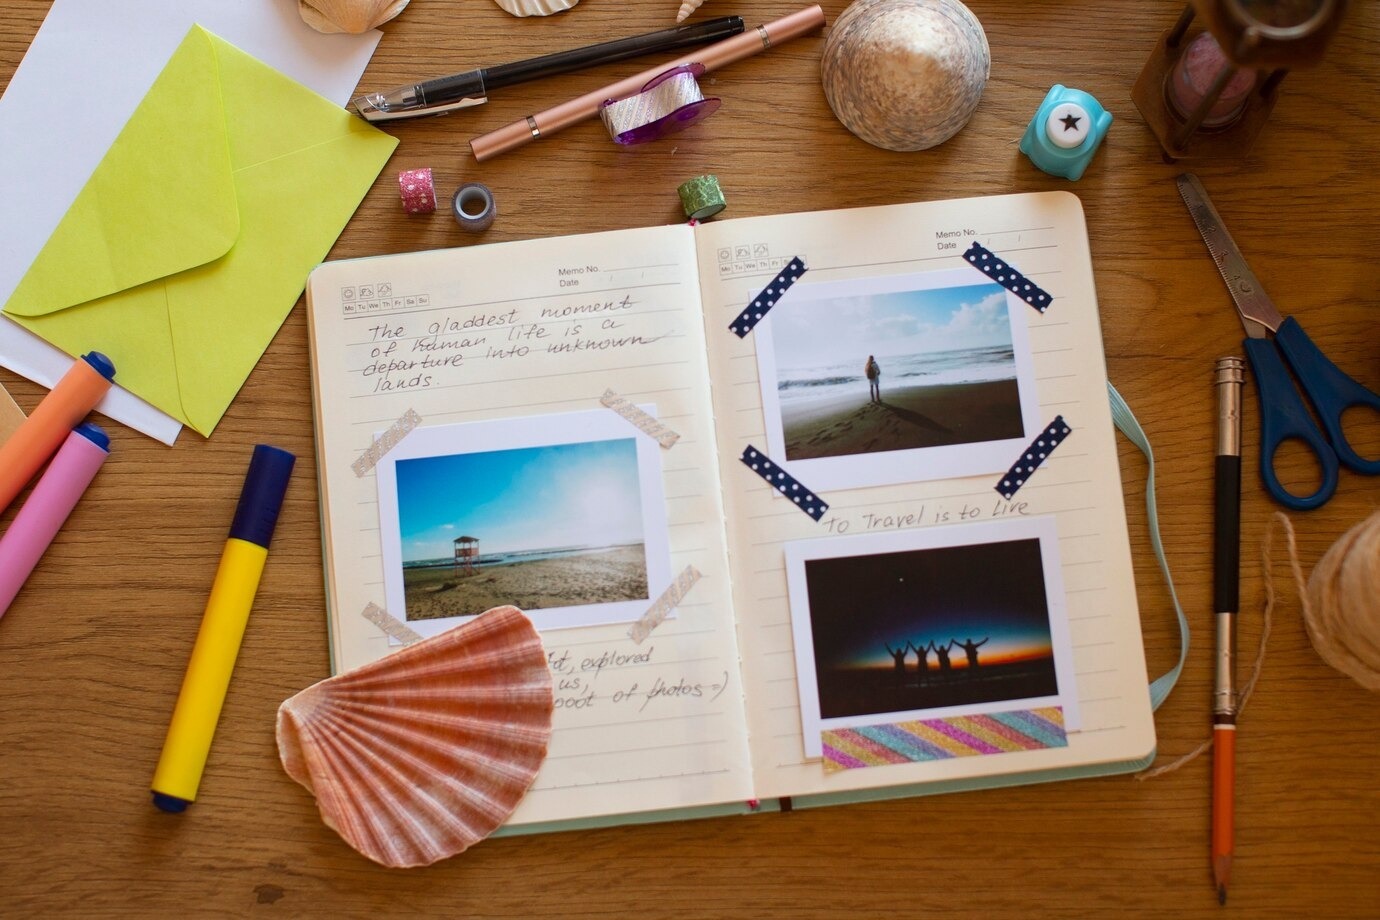 Memo No.
Date
Mo Tu We Th Fr Sa Su
The gladdest moment
of human life is a
departure into unknown
lands.
explored
us,
of photos =)
Memo No.
Date
Mo Tu We Th Fr
To Travel is to Live